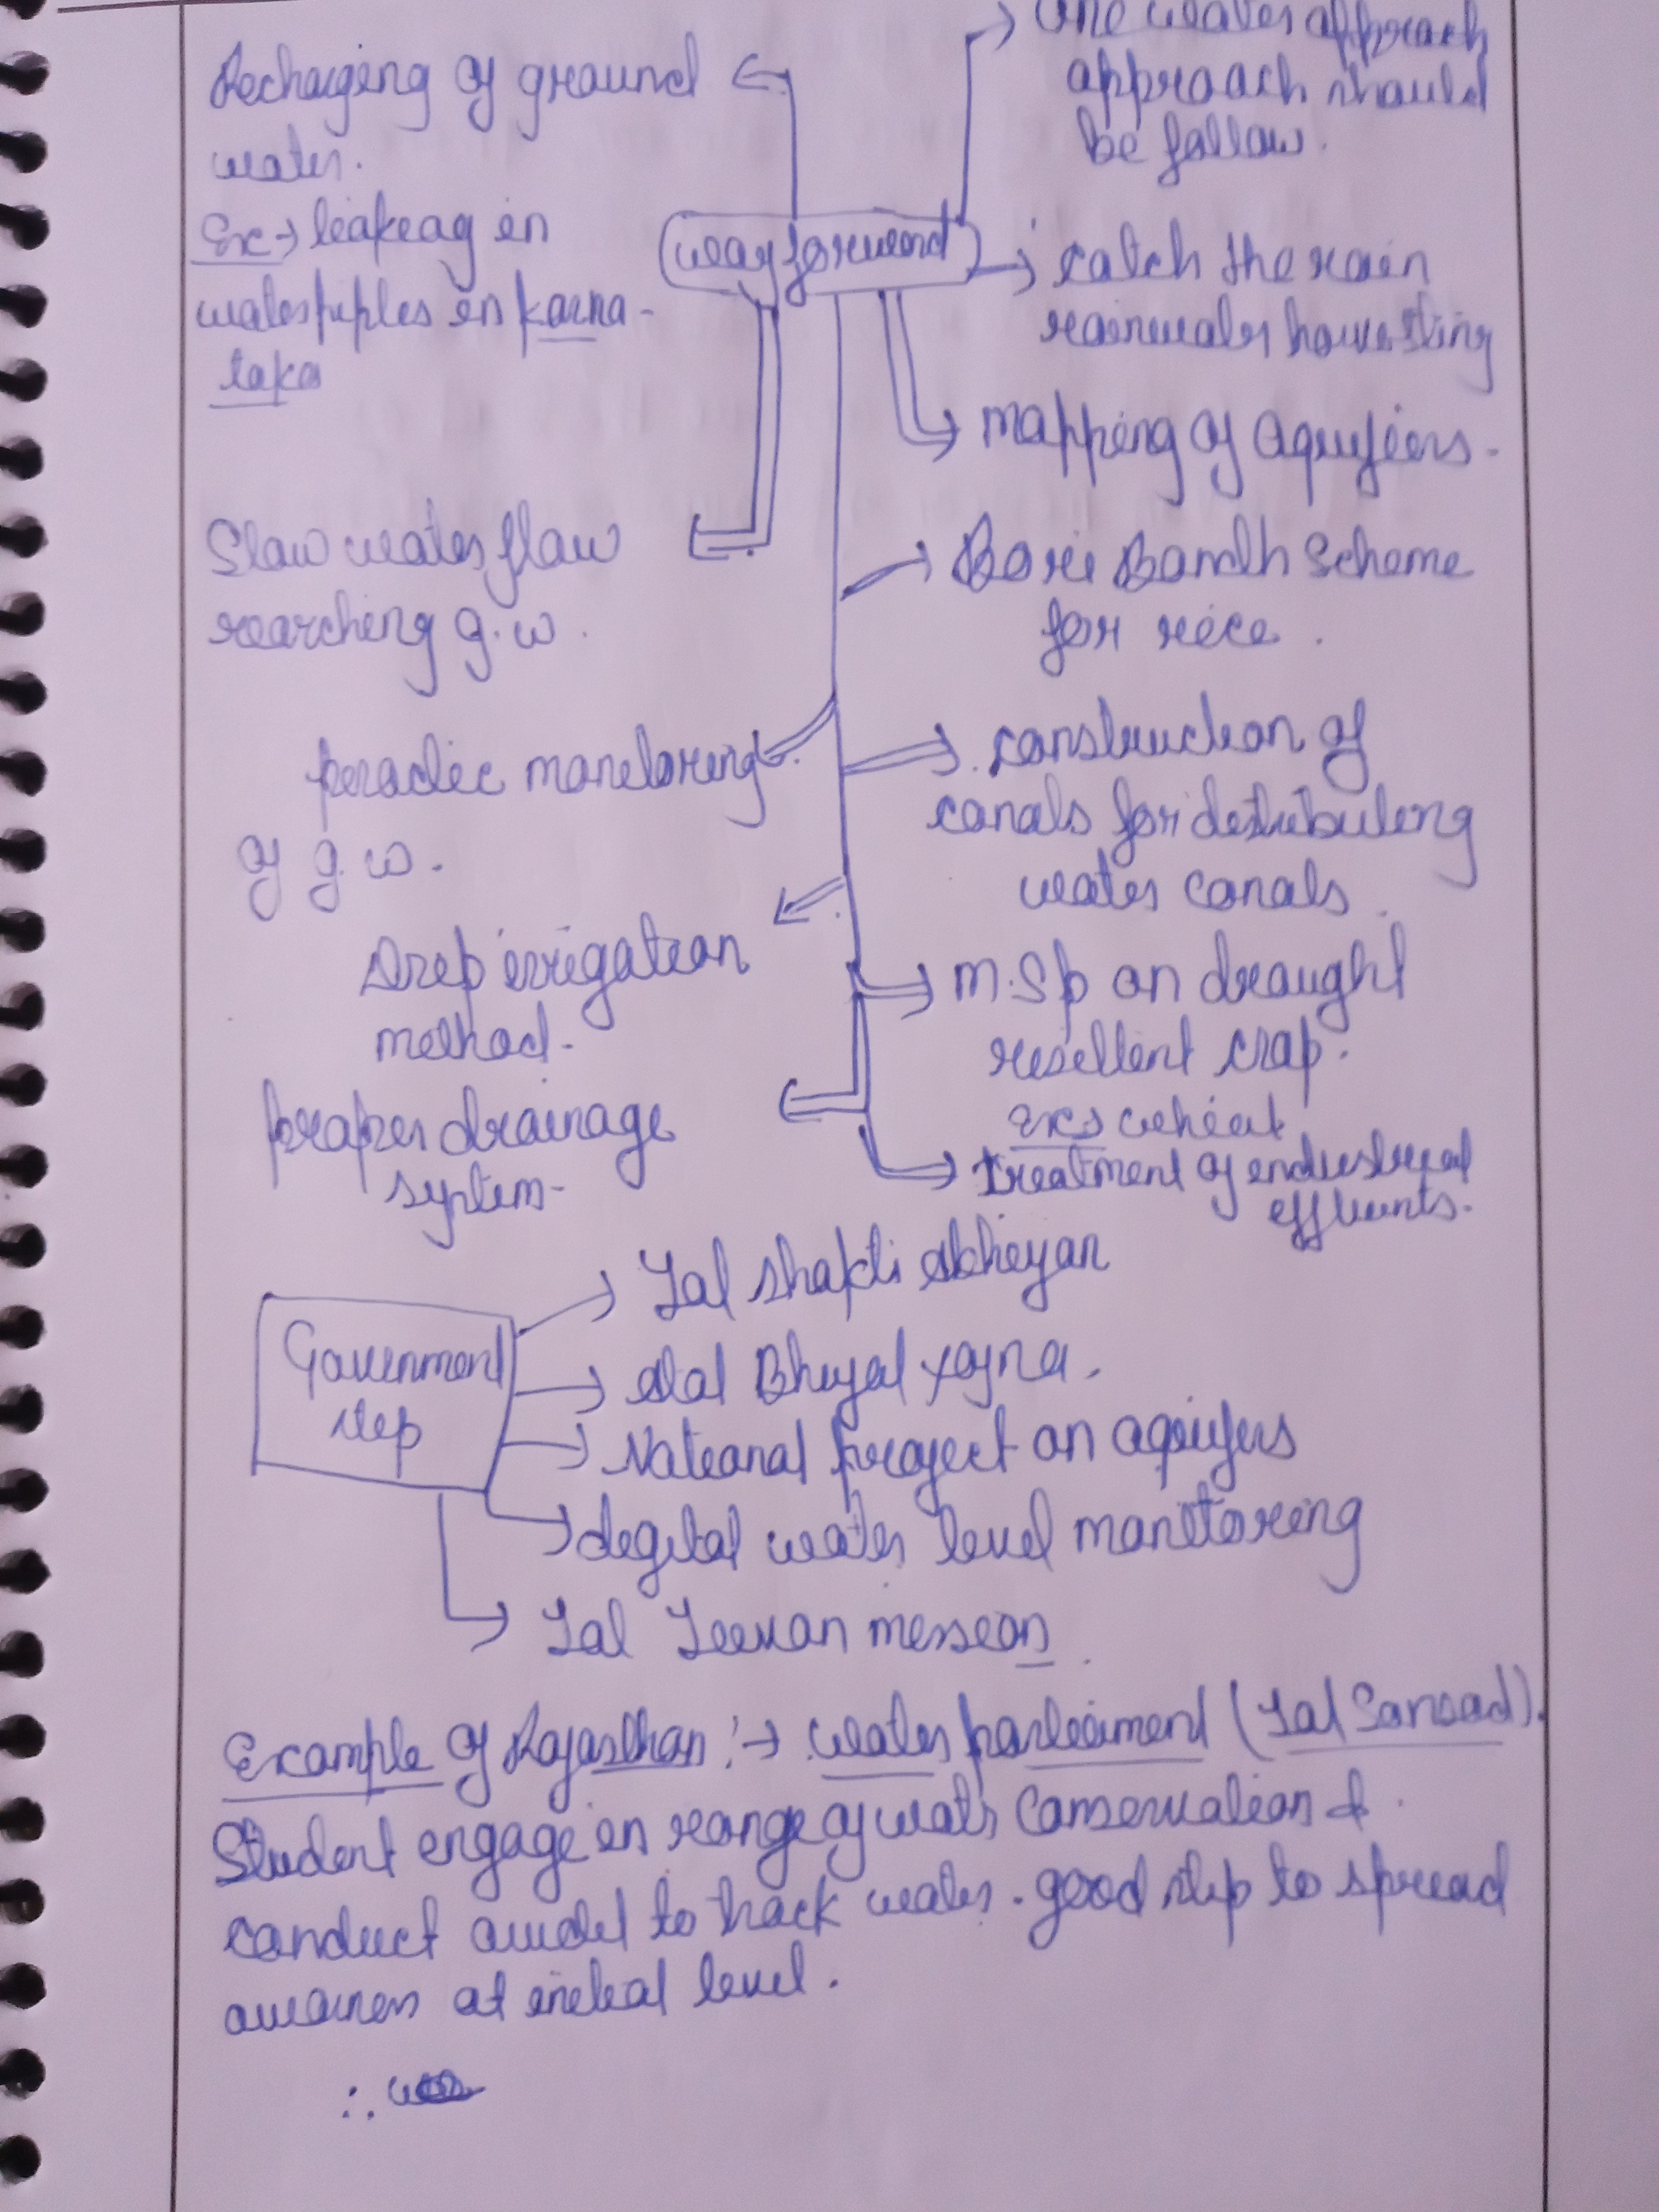 Recharging of ground
water.
Ex → leakeag in
waterpiples in karna-
taka
Slow water flow
rearching g.w.
peraodic monitoring
of g.w.
Drip irrigation
method.
proper drainage
system-
way forward
One water approach
approach should
be follow.
catch the rain
rainwater harvesting
mapping of aquifiers.
Bori Bandh Scheme
for rice.
construction of
canals for distributing
water canals.
M.Sp on draught
resellent crop.
Ex→ wheat
treatment of industrial
effluents.
Government
step
Jal Shakti Abhiyan
Atal Bhujal Yojna.
National project on aquifers
digital water level monitoring
Jal Jeevan mission
Example of Rajasthan :→ water parleiment (Jal Sansad).
Student engage in range of watr Conservation &
conduct audit to track water. good step to spread
awarness at initial level.
∴